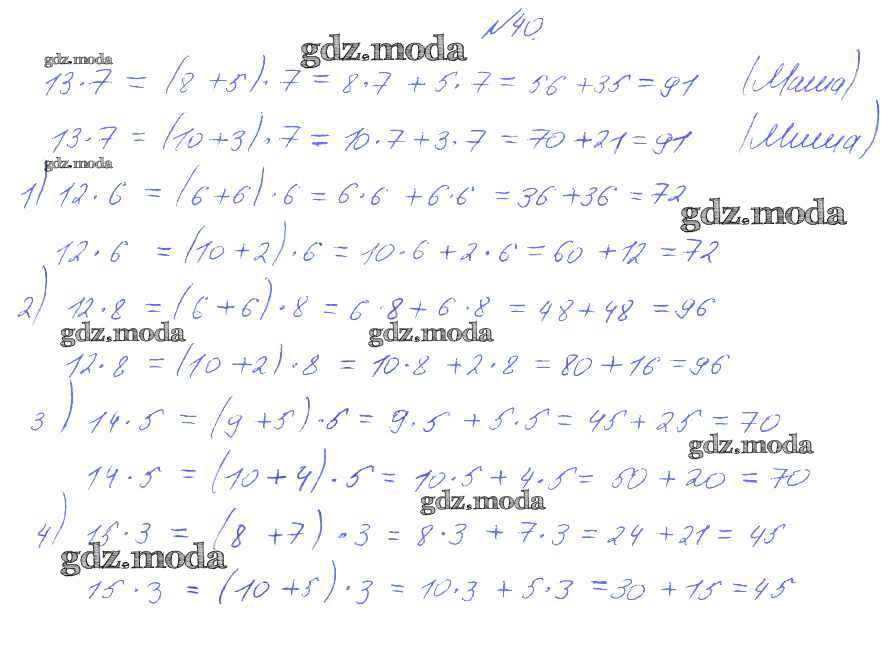 №40.
gdz.moda
gdz.moda
13·7 = (8+5)·7 = 8·7 + 5·7 = 56+35 = 91 (Маша)
13·7 = (10+3)·7 = 10·7+3·7 = 70+21=91 (Миша)
gdz.moda
1) 12·6 = (6+6)·6 = 6·6 + 6·6 = 36+36 = 72
gdz.moda
12·6 = (10+2)·6 = 10·6+2·6 = 60+12=72
2) 12·8 = (6+6)·8 = 6·8+6·8 = 48+48 = 96
gdz.moda gdz.moda
12·8 = (10+2)·8 = 10·8 +2·8 = 80+16 =96
3) 14·5 = (9+5)·5 = 9·5 + 5·5 = 45+25 = 70
gdz.moda
14·5 = (10+4)·5 = 10·5+4·5 = 50+20 = 70
gdz.moda
4) 15·3 = (8+7)·3 = 8·3 + 7·3 = 24+21= 45
gdz.moda
15·3 = (10+5)·3 = 10·3 + 5·3 =30+15=45